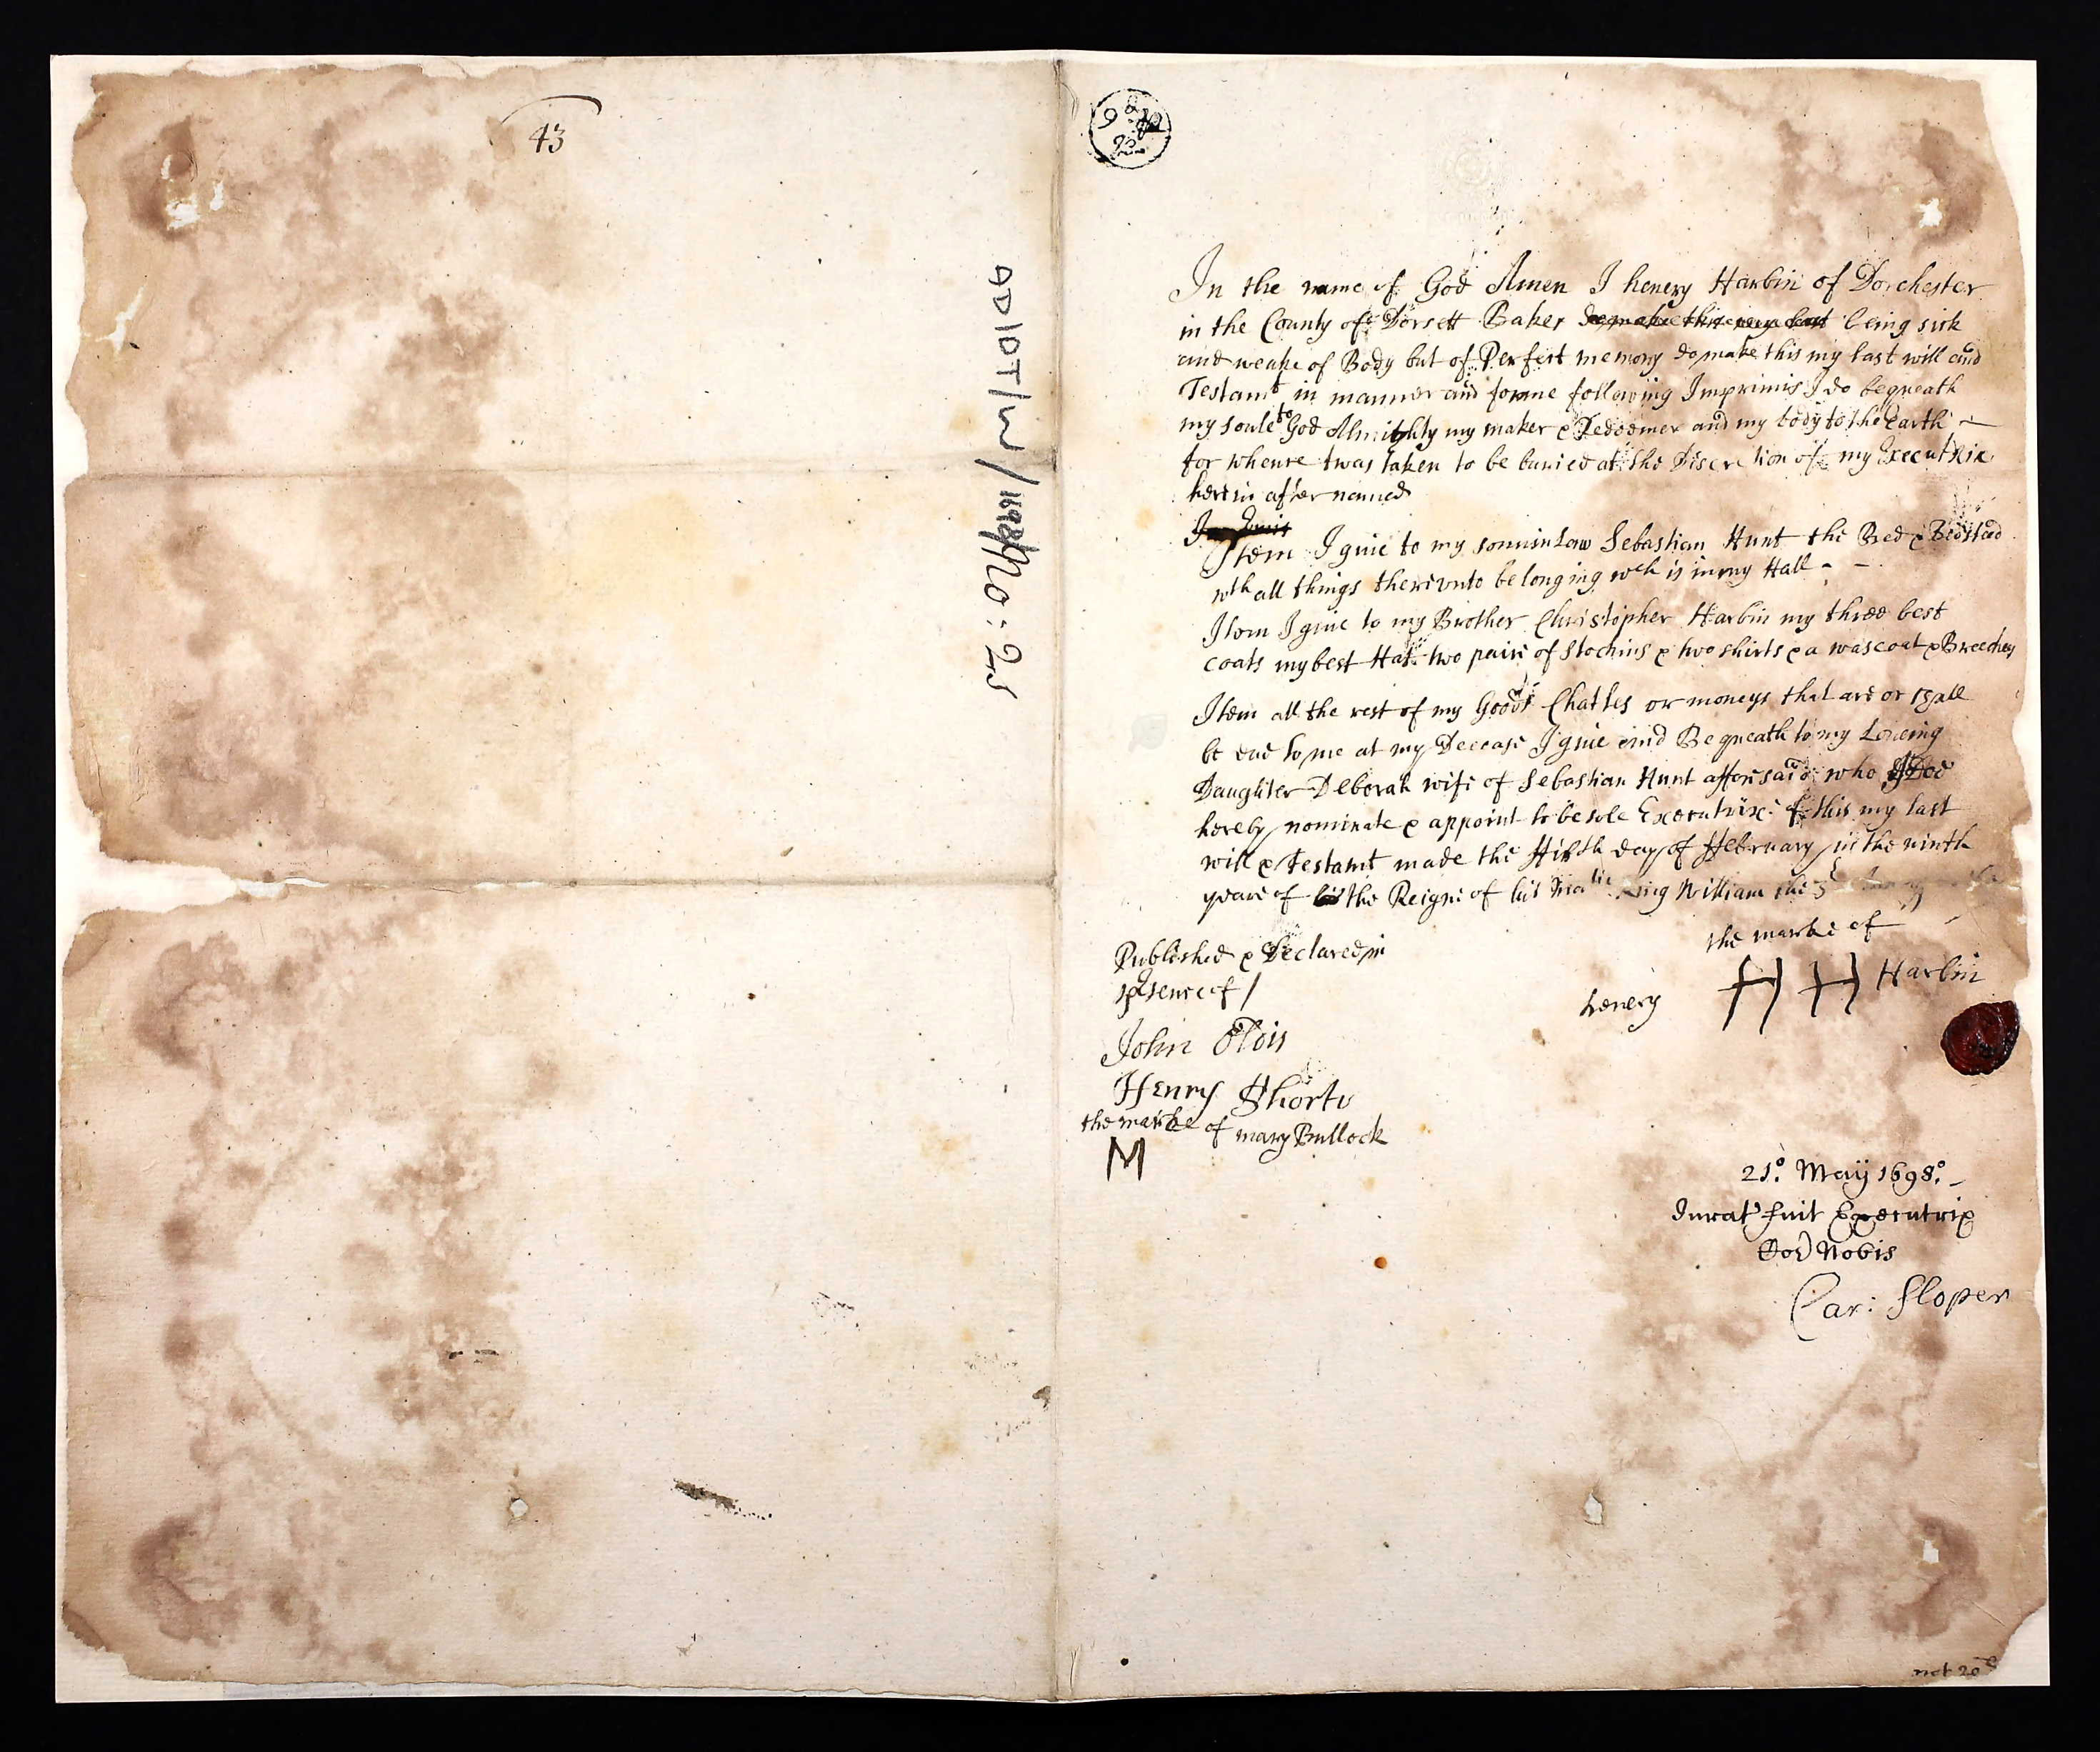 43
ADIOT/W/1698/No: 25
In the name of God Amen I henery Harbin of Dorchester
in the County of Dorsett Baker do make this my last being sick
and weake of Body but of Perfect memory do make this my last will and
Testamt in manner and forme following Imprimis I do bequeath
my soule to God Almighty my maker & Redeemer and my body to the Earth
for whence twas taken to be buried at the Discretion of my Executrix
herein after named
Item I giue to my sonninlaw Sebastian Hunt the Bed & Bedsteed
wth all things therevnto belonging wch is in my Hall
Item I giue to my Brother Christopher Harbin my three best
coats my best Hat two paire of Stockins & two shirts & a wascoat & Breeches
Item all the rest of my Goods Chattles or moneys that are or shall
be due to me at my Decease I giue and Bequeath to my Loueing
Daughter Deborah wife of Sebastian Hunt afforsaid who I Doe
hereby nominate & appoint to be sole Executrixe of this my last
will & Testamt made the ffifth day of ffebruary in the ninth
yeare of the Reigne of his Matie King William the 3d
the marke of
henery H H Harbin
Published & Declared in
psence of /
John Olois
Henry Shorto
the marke of mary Bullock
M
21o: May 1698o:
Jurat' fuit Executrix
Cor) Nobis
Car: Sloper
not 20d